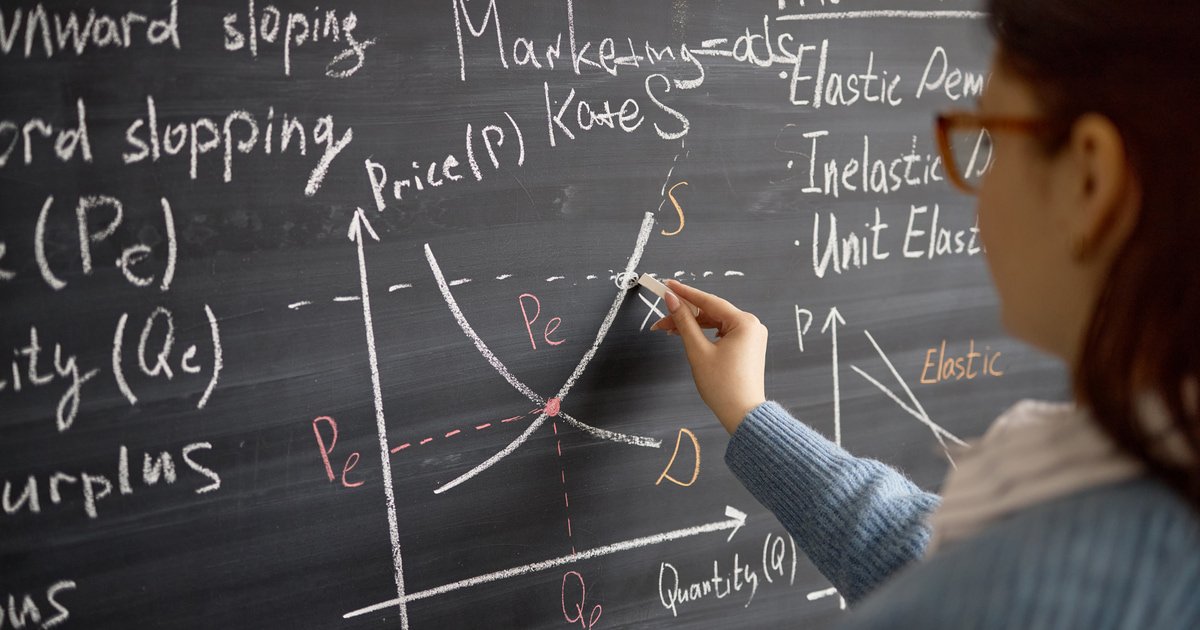 wnward sloping
ord slopping
(Pe)
ity (Qe)
urplus
us
Marketing=ads
Kate S
Price(P)
S
Pe
X
Pe
D
Quantity(Q)
Qe
· Elastic Dem
· Inelastic D
· Unit Elast
P
Elastic